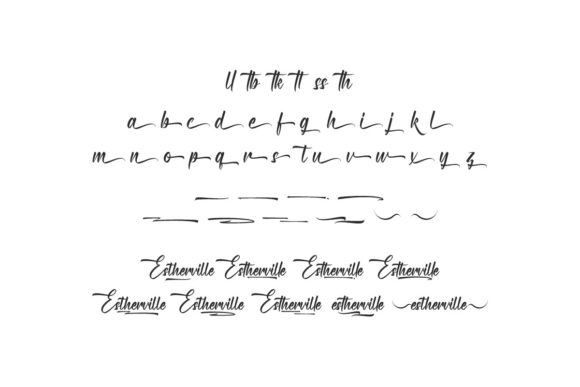 ll tb tk tt ss th
a b c d e f g h i j k l
m n o p q r s t u v w x y z
Estherville Estherville Estherville Estherville
Estherville Estherville Estherville estherville estherville